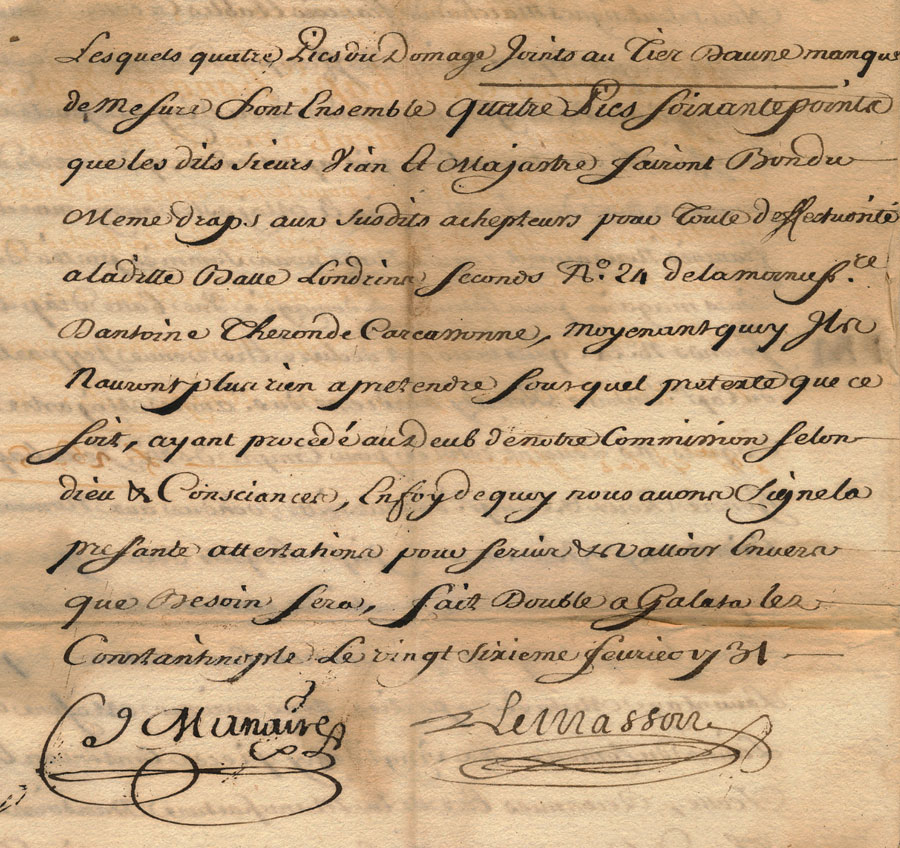 Lesquels quatre Pics du Domage Joints au Tier Daune manque
de Mesure font Ensemble quatre Pics soixante points
que les dits sieurs Vian Et Majastre fairont Bon du
Meme draps aux susdits achepteurs pour Toute deffectuorité
a laditte Balle Londrins seconds N.o 24 de la mornu f.re
Dantoine Theron de Carcassonne, moyenant quoy Ils
Nauront plus rien a pretendre sous quel pretexte que ce
soit, ayant procedé au deub de notre Commission selon
dieu & Consciances, En foy de quoy nous avons signe la
presante attestations pour servir & valloir Envers
que Besoin sera, fait Double a Galata lez
Constantinople Le vingt sixieme fevrier 1731
J Manaire
Le Masson